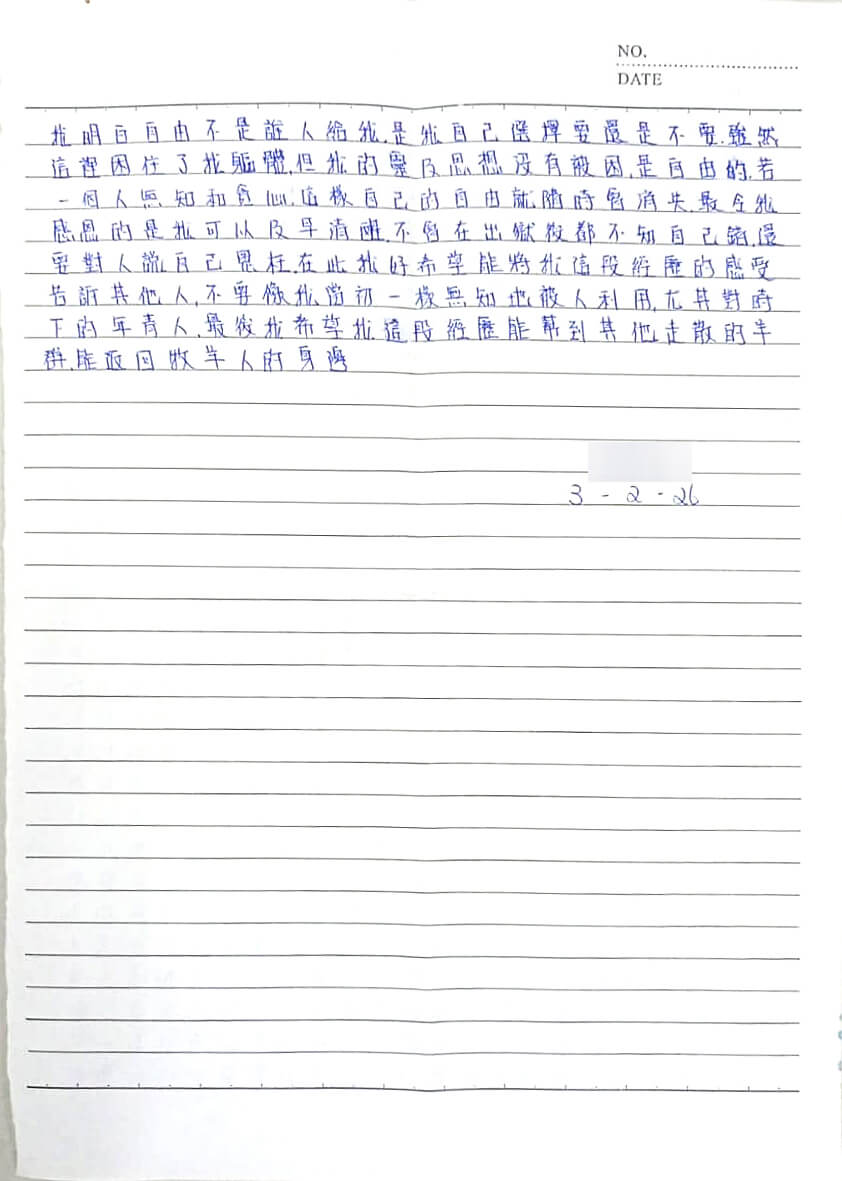 NO.
DATE
我明白自由不是誰人給我,是我自己選擇要還是不要,雖然
這裡困住了我軀體,但我的靈及思想沒有被困,是自由的,若
一個人無知和貪心,這樣自己的自由就隨時會消失,最令我
感恩的是我可以及早清醒,不會在出獄後都不知自己錯,還
要對人說自己冤枉,在此我好希望能將我這段經歷的感受
告訴其他人,不要像我當初一樣無知地被人利用,尤其對時
下的年青人,最後我希望我這段經歷能幫到其他走散的羊
群,能返回牧羊人的身邊
3-2-26